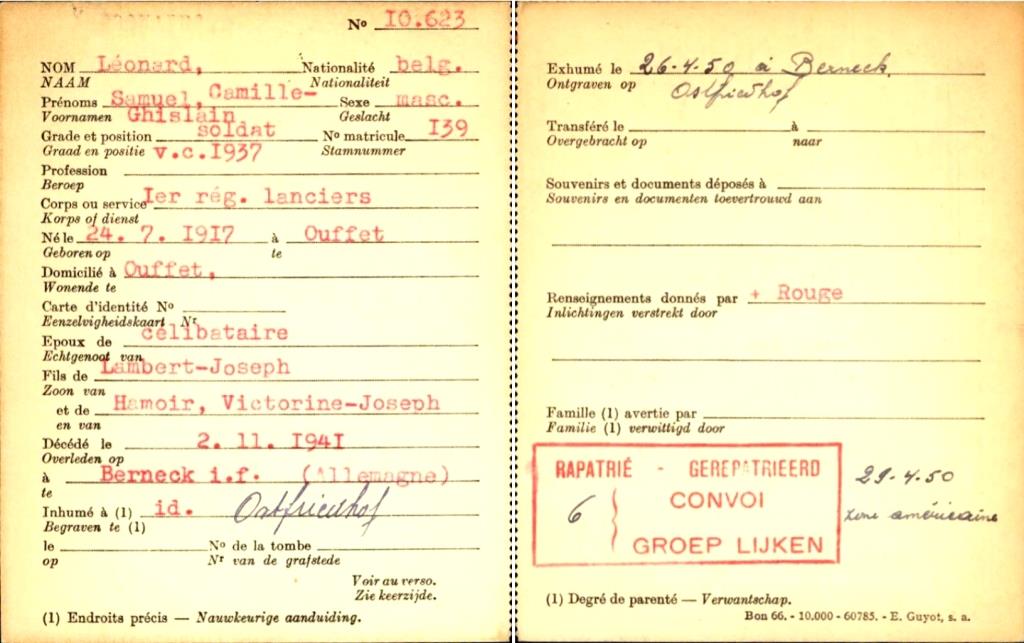 No 10.623
NOM Léonard, Nationalité belg.
NAAM Nationaliteit
Prénoms Samuel, Camille- Sexe masc.
Voornamen Ghislain Geslacht
Grade et position soldat No matricule I39
Graad en positie v.c.I937 Stamnummer
Profession
Beroep
Corps ou service Ier rég. lanciers
Korps of dienst
Né le 24. 7. I9I7 à Ouffet
Geboren op te
Domicilié à Ouffet,
Wonende te
Carte d'identité No
Eenzelvigheidskaart Nr.
Epoux de célibataire
Echtgenoot van
Fils de Lambert-Joseph
Zoon van
et de Hamoir, Victorine-Joseph
en van
Décédé le 2. II. I94I
Overleden op
à Berneck i.f. (Allemagne)
te
Inhumé à (1) id. Ostfriedhof
Begraven te (1)
le No de la tombe
op Nr van de grafstede
Voir au verso.
Zie keerzijde.
(1) Endroits précis — Nauwkeurige aanduiding.
Exhumé le 26-4-50 à Berneck
Ontgraven op Ostfriedhof
Transféré le à
Overgebracht op naar
Souvenirs et documents déposés à
Souvenirs en documenten toevertrouwd aan
Renseignements donnés par + Rouge
Inlichtingen verstrekt door
Famille (1) avertie par
Familie (1) verwittigd door
RAPATRIÉ - GEREPATRIEERD
6 CONVOI
GROEP LIJKEN
29-4-50
zone américaine
(1) Degré de parenté — Verwantschap.
Bon 66. - 10.000 - 60785. - E. Guyot, s. a.